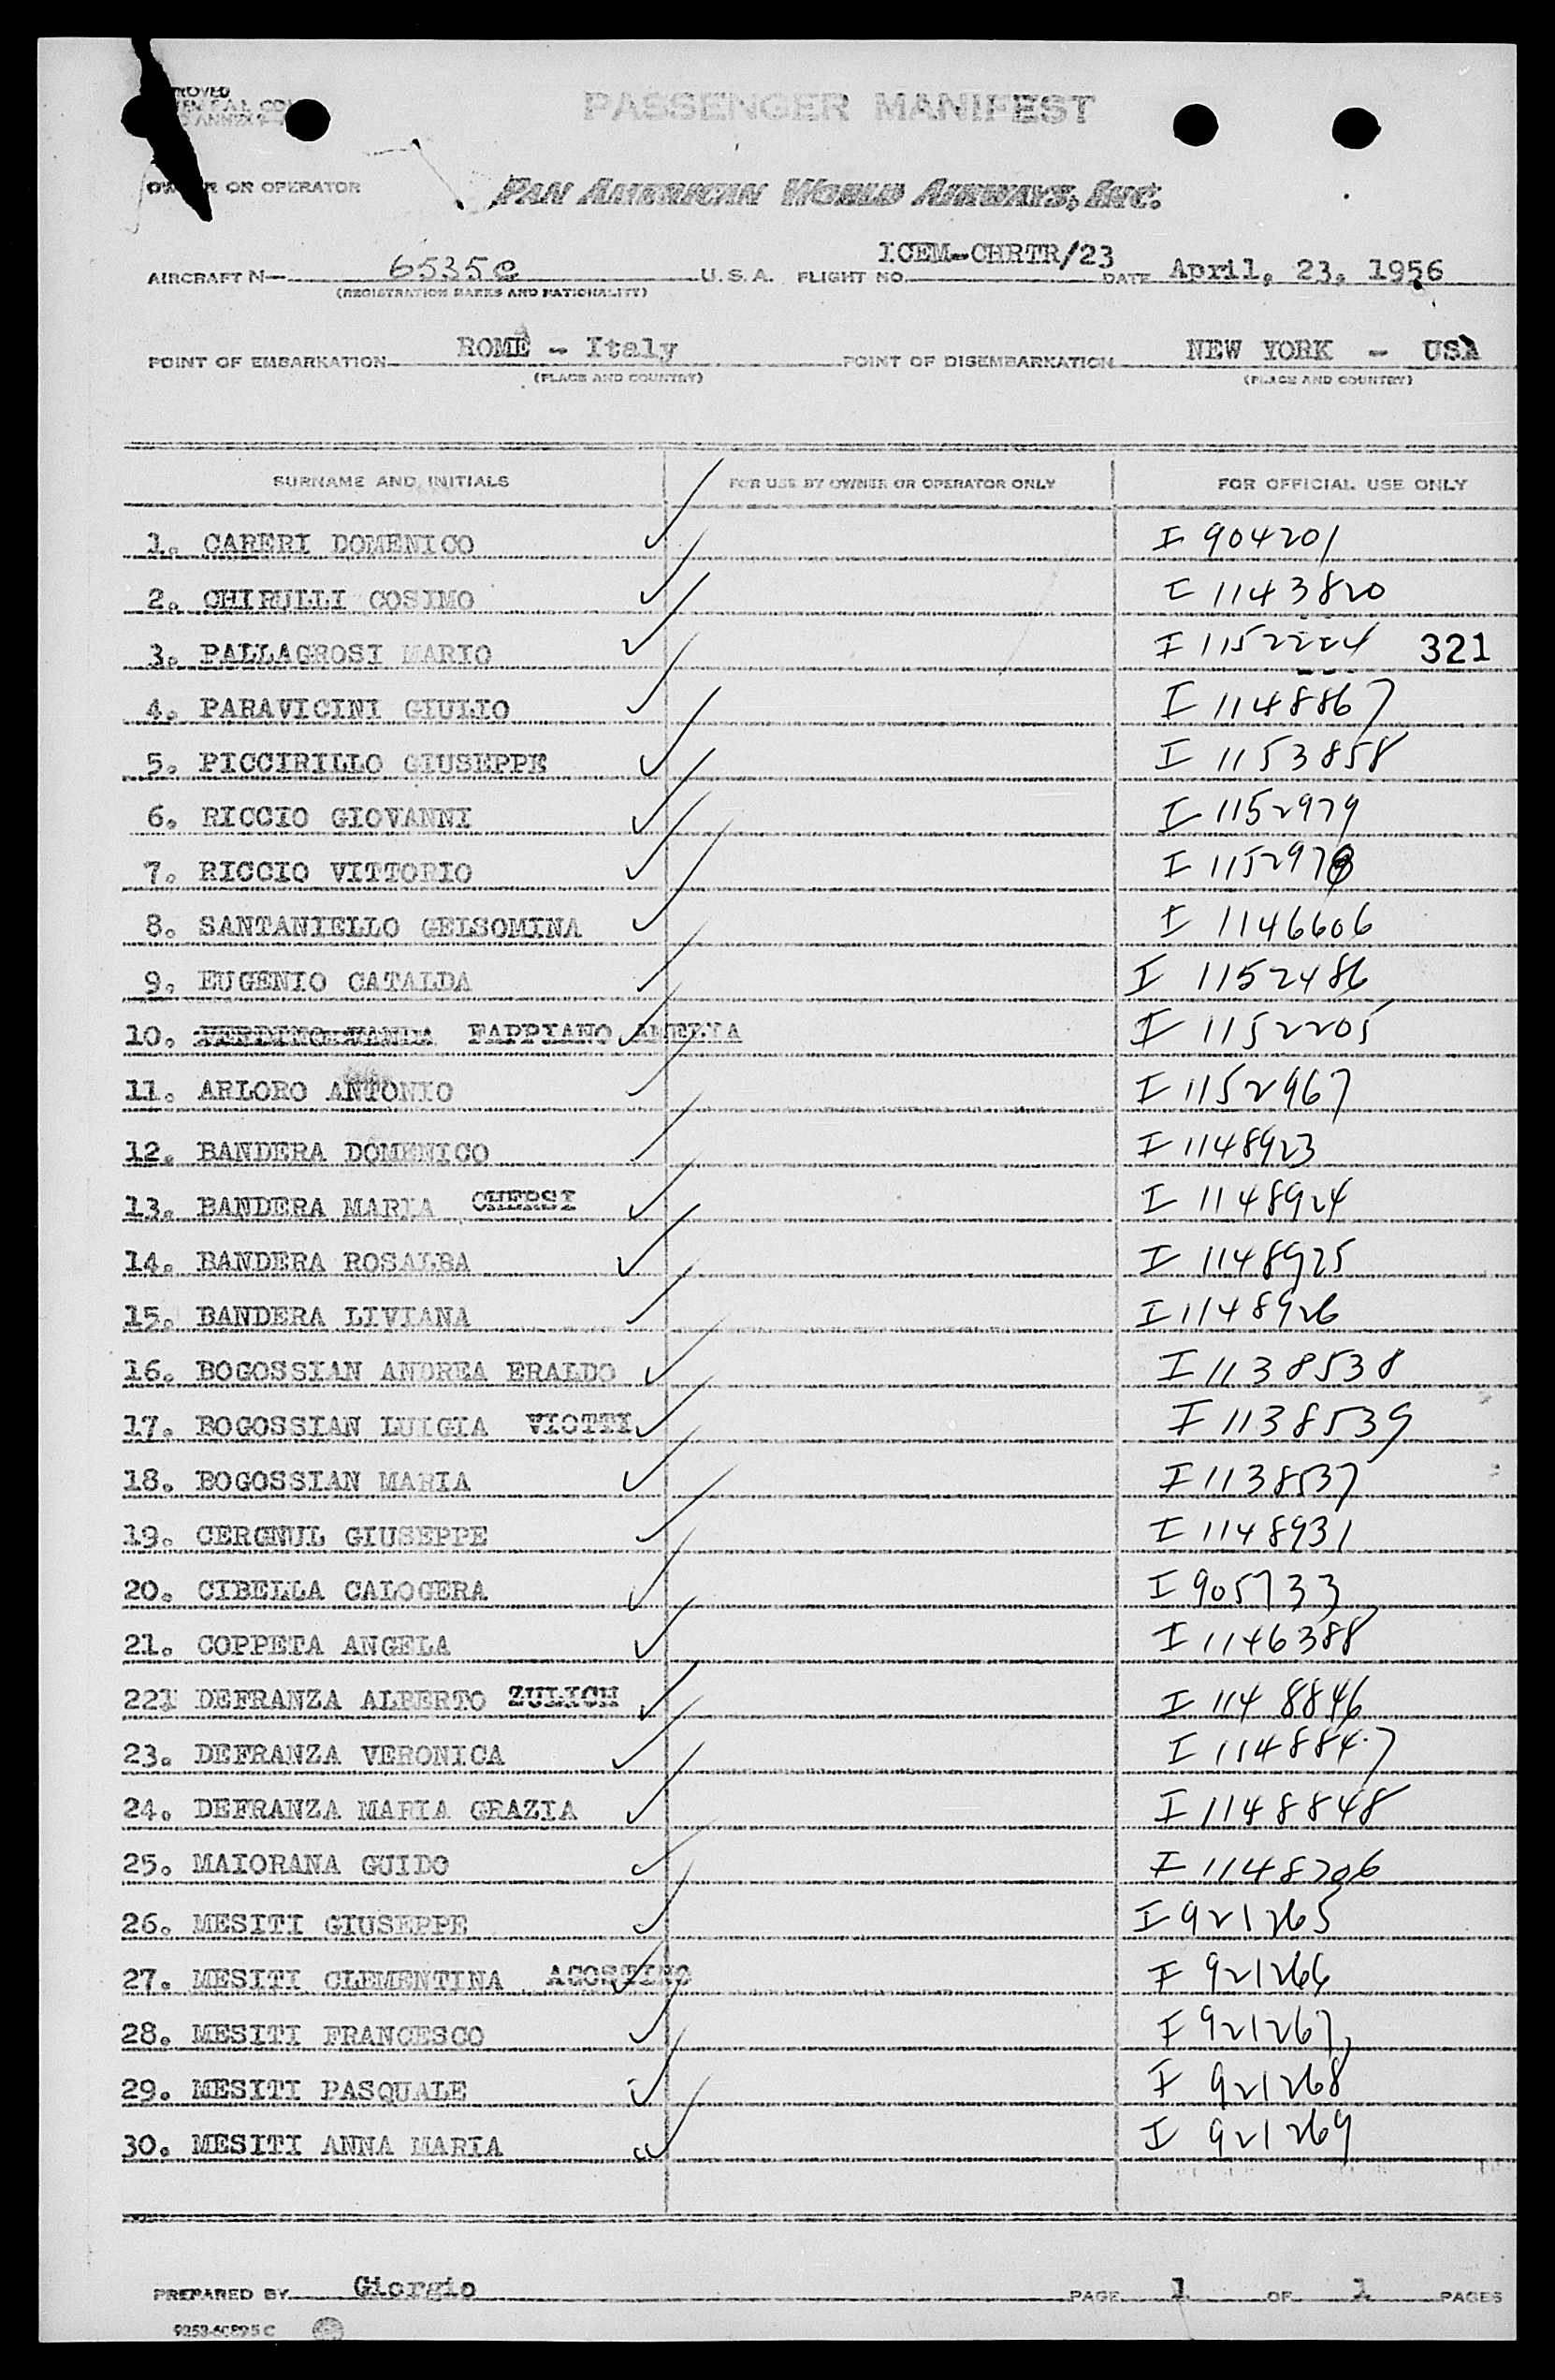 PASSENGER MANIFEST
OR OPERATOR
PAN AMERICAN WORLD AIRWAYS, INC.
AIRCRAFT N— U.S.A. FLIGHT NO. ICEM-CHRTR/23 DATE April, 23, 1956
(REGISTRATION MARKS AND NATIONALITY)
POINT OF EMBARKATION ROME - Italy POINT OF DISEMBARKATION NEW YORK - USA
(PLACE AND COUNTRY) (PLACE AND COUNTRY)
SURNAME AND INITIALS FOR USE BY OWNER OR OPERATOR ONLY FOR OFFICIAL USE ONLY
1. CARERI DOMENICO I 904201
2. CHIRULLI COSIMO I 1143820
3. PALLAGROSI MARIO I 1152224 321
4. PARAVICINI GIULIO I 1148867
5. PICCIRILLO GIUSEPPE I 1153858
6. RICCIO GIOVANNI I 1152979
7. RICCIO VITTORIO I 1152978
8. SANTANIELLO GELSOMINA I 1146606
9. EUGENIO CATALDA I 1152486
10. FAPPIANO AMELIA I 1152205
11. ARLORO ANTONIO I 1152967
12. BANDERA DOMENICO I 1148923
13. BANDERA MARIA CHERSI I 1148924
14. BANDERA ROSALBA I 1148925
15. BANDERA LIVIANA I 1148926
16. BOGOSSIAN ANDREA ERALDO I 1138538
17. BOGOSSIAN LUIGIA VIOTTI I 1138539
18. BOGOSSIAN MARIA I 1138537
19. CERGNUL GIUSEPPE I 1148931
20. CIBELLA CALOGERA I 905733
21. COPPETA ANGELA I 1146388
22 DEFRANZA ALBERTO ZULICH I 1148846
23. DEFRANZA VERONICA I 1148847
24. DEFRANZA MARIA GRAZIA I 1148848
25. MAIORANA GUIDO I 1148706
26. MESITI GIUSEPPE I 921265
27. MESITI CLEMENTINA AGOSTINO I 921266
28. MESITI FRANCESCO I 921267
29. MESITI PASQUALE I 921268
30. MESITI ANNA MARIA I 921269
PREPARED BY Giorgio PAGE 1 OF 1 PAGES